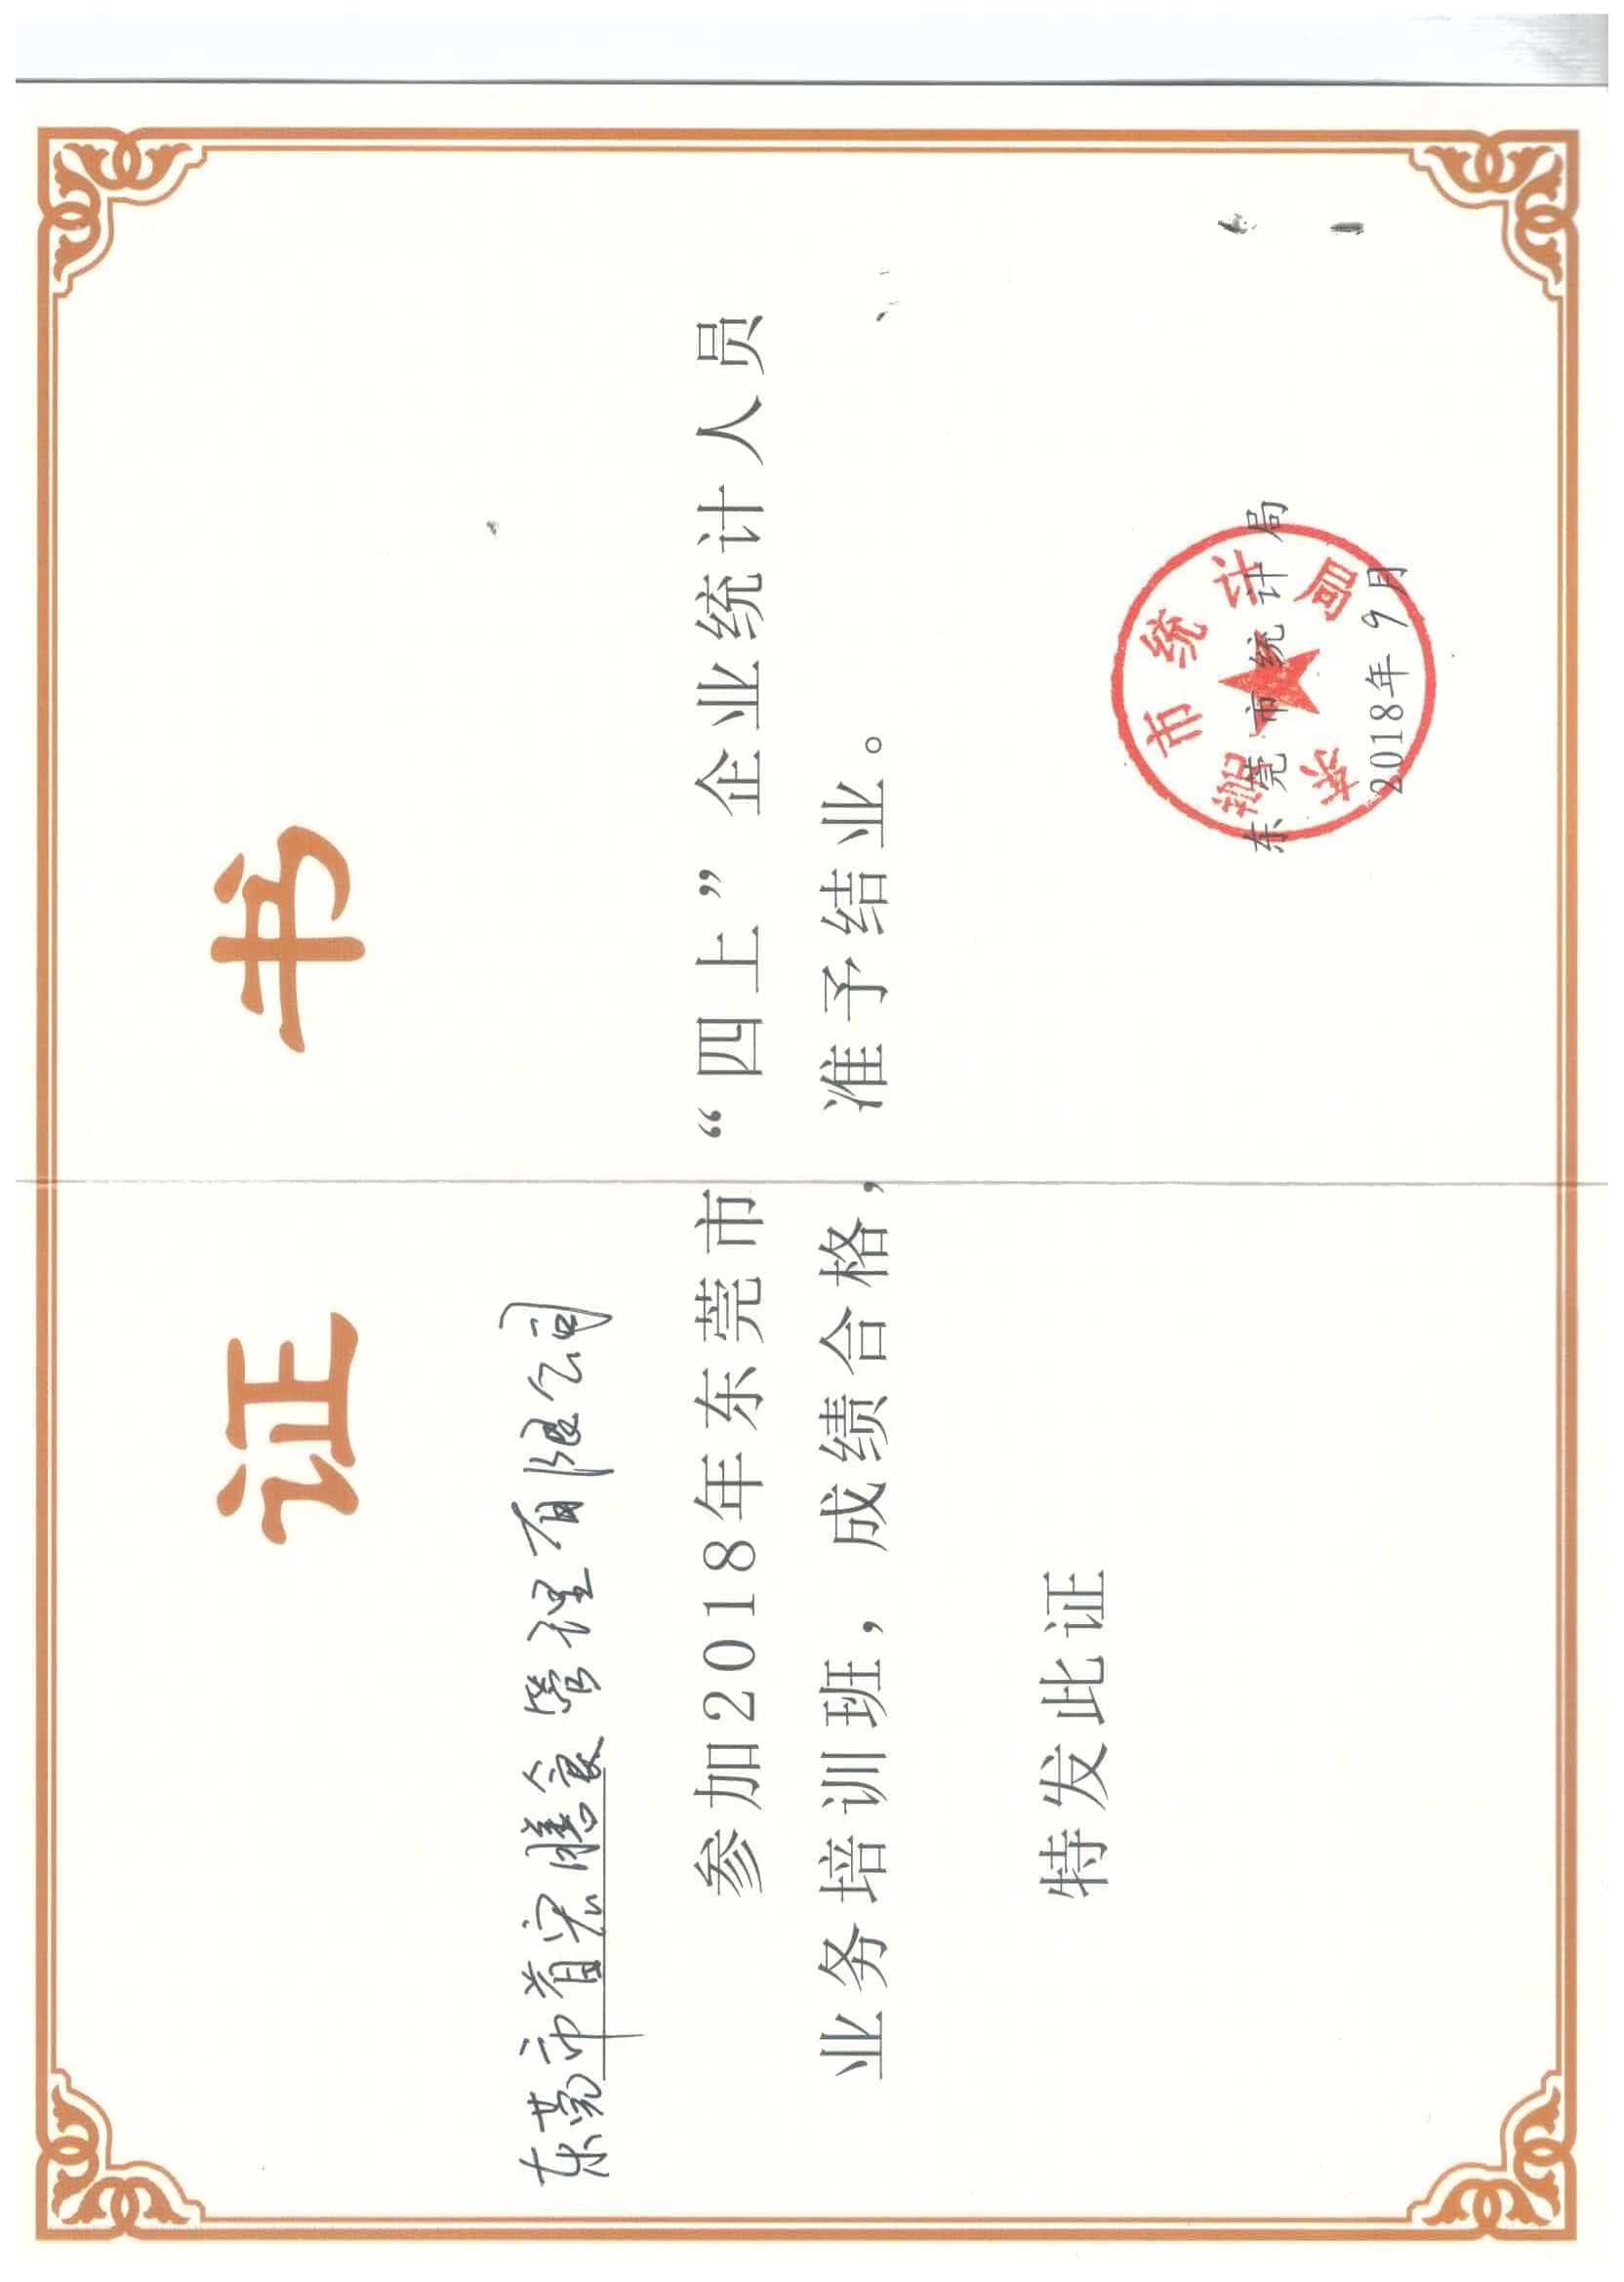 证书
东莞市首宏膳食管理有限公司
参加2018年东莞市“四上”企业统计人员
业务培训班，成绩合格，准予结业。
特发此证
东莞市统计局
东莞市统计局
2018年9月